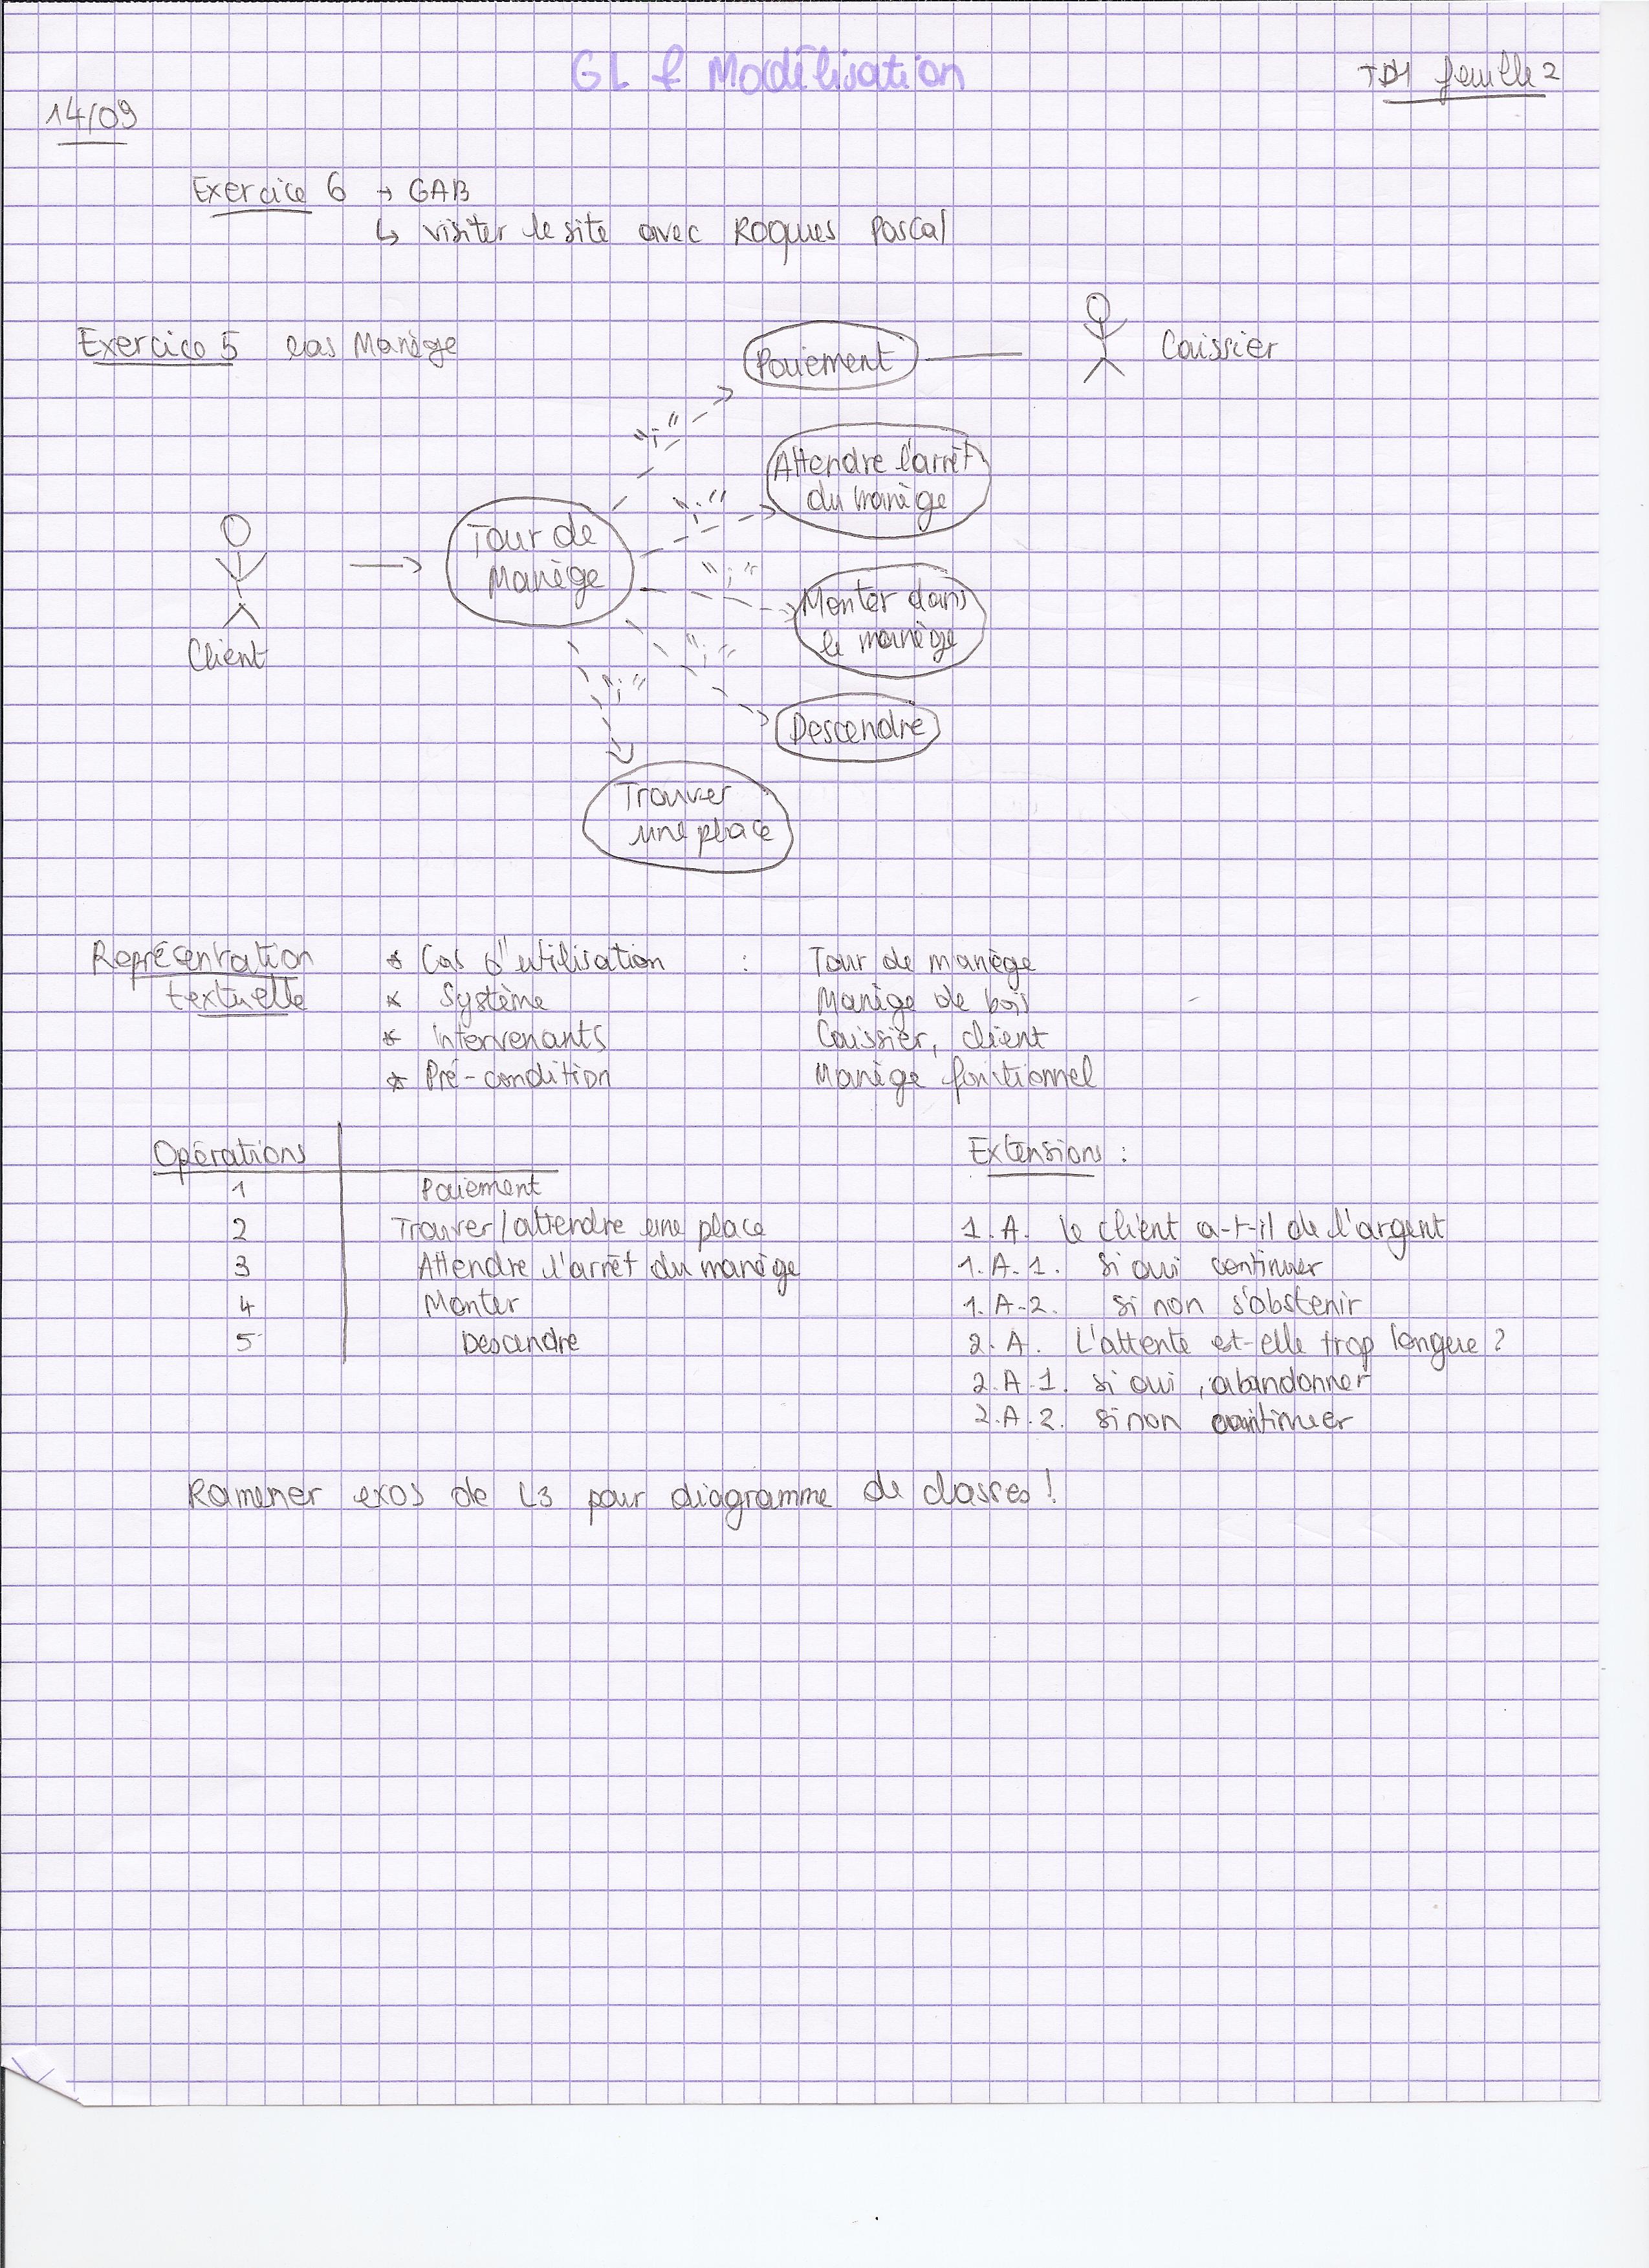 GL & Modélisation
TD1 feuille 2
14/09
Exercice 6 → GAB
↳ visiter le site avec Roques Pascal
Exercice 5 cas Manège
Paiement
Caissier
"i"
Attendre l'arrêt
du manège
"i"
Tour de
Manège
"i"
Monter dans
le manège
Client
"i"
"i"
Descendre
Trouver
une place
Représentation * Cas d'utilisation : Tour de manège
textuelle * Système Manège de bois
* Intervenants Caissier, client
* Pré-condition Manège fonctionnel
Opérations
Extensions :
1 Paiement
2 Trouver/attendre une place 1.A. le client a-t-il de l'argent
3 Attendre l'arrêt du manège 1.A.1. Si oui continuer
4 Monter 1.A-2. si non s'abstenir
5 Descendre 2.A. L'attente est-elle trop longue ?
2.A.1. si oui, abandonner
2.A.2. si non continuer
Ramener exos de L3 pour diagramme de classes !